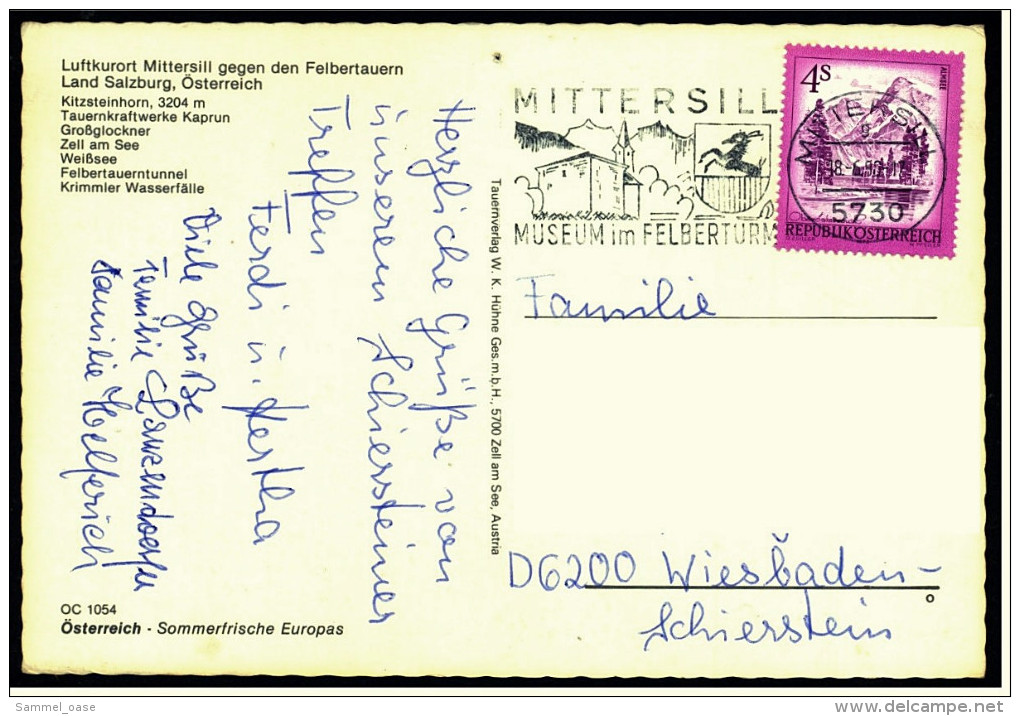 Luftkurort Mittersill gegen den Felbertauern
Land Salzburg, Österreich
Kitzsteinhorn, 3204 m
Tauernkraftwerke Kaprun
Großglockner
Zell am See
Weißsee
Felbertauerntunnel
Krimmler Wasserfälle
Herzliche Grüße von
unserem Schiersteiner
Treffen
Ferdi u. Hertha
Viele Grüße
Familie
Familie Helferich
OC 1054
Österreich - Sommerfrische Europas
Tauernverlag W. K. Hühne Ges.m.b.H., 5700 Zell am See, Austria
MITTERSILL
MUSEUM im FELBERTURM
4S
ALMSEE
REPUBLIK ÖSTERREICH
MITTERSILL
5730
Familie
D6200 Wiesbaden-
Schierstein
Sammel_oase
www.delcampe.net